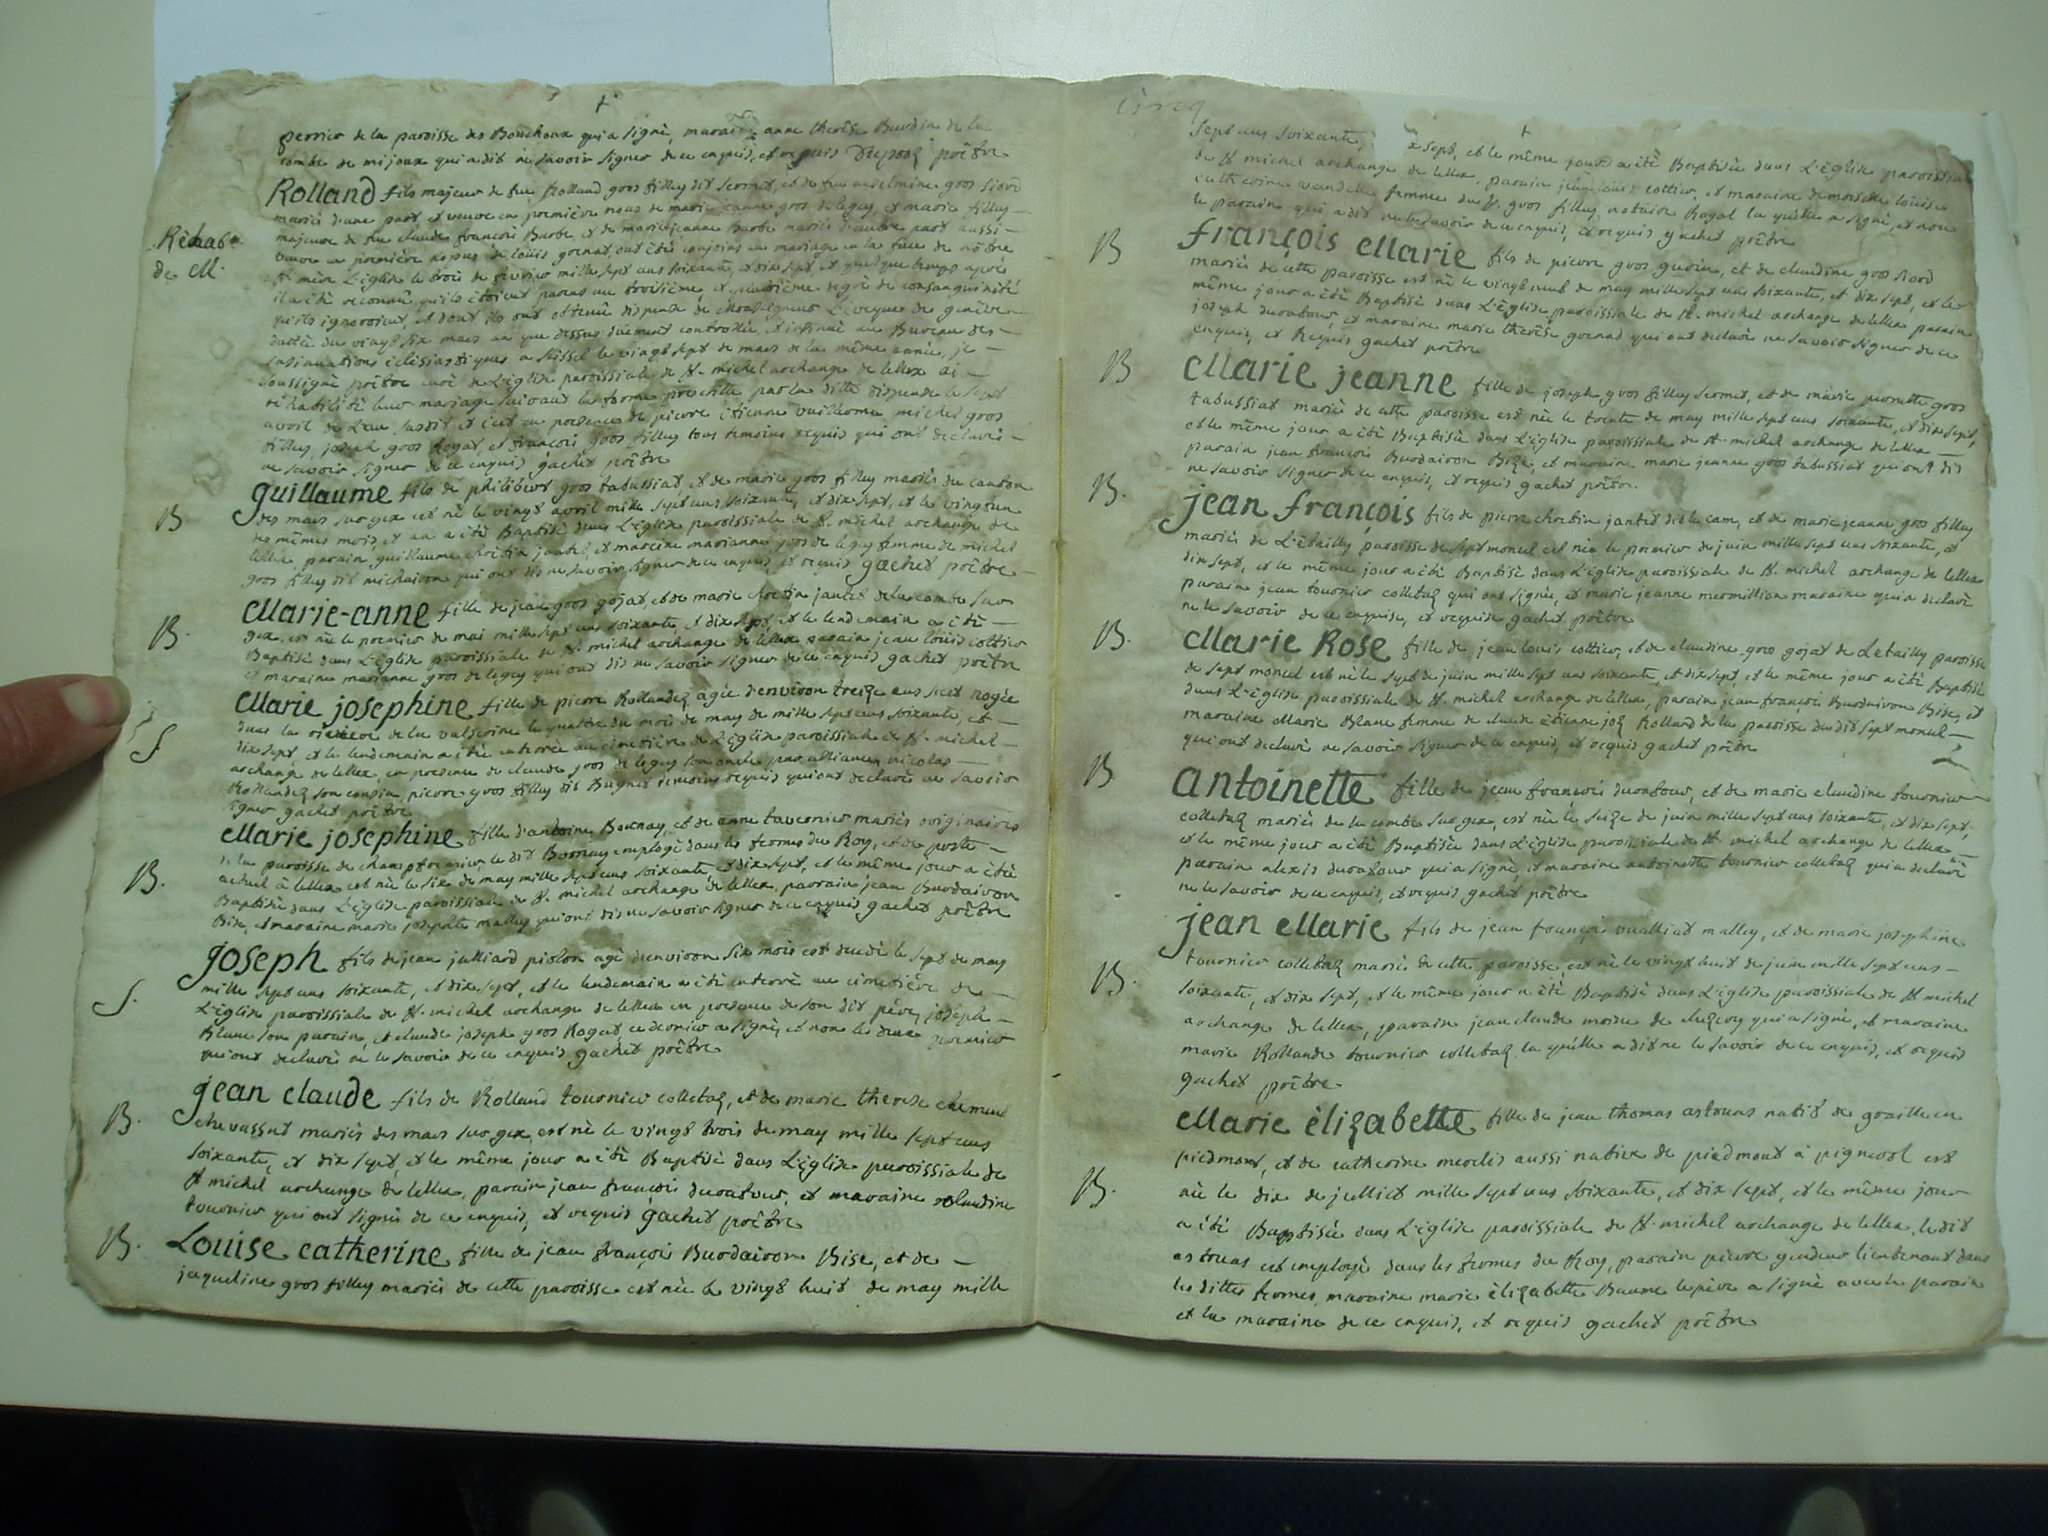 perrier de la paroisse des Bouchoux qui a signé, maraine anne therèse Burdin de la
combe de mijoux qui a dit ne savoir signer de ce enquis, et requis prêtre
Rolland fils majeur de feu Rolland gros filley dit scornet, et de feu andelmine gros siord
mariés d'une part et veuve en première nous de marie jeanne gros de legey, et marie filley
Réhab.on
majeure de feu claude françois Burbe, et de marie jeanne Burbe mariés d'autre part aussi
veuve en première nopces de louis grenat, ont étés conjoins en mariage en la face de nôtre
de M.
Ste mère L'église le trois de février mille sept cens soixante, et dix sept, et quelque temps après
il a été reconnu qu'ils étoient parens au troisième, et quatrième degré de consanguinité
qu'ils ignoroient, et dont ils ont obtenû dispense de Monseigneur L'eveque de genève
dattée du vingt six mars an que dessus düement controllée, et insinué au Bureau des
insinuations éclésiastiques a seissel le vingt sept de mars de la même année, je
soussigné prêtre curé de L'église paroissiale de St. michel archange de lellex ai
réhabilité leur mariage suivant la forme prescritte par la ditte dispense le sept
avril de L'an susdit et c'est en presence de pierre étienne vuillerme michel gros
filley, joseph gros Rogat, et françois gros filley tous temoins requis qui ont declarés
ne savoir signer de ce enquis gachet prêtre
guillaume fils de philibert gros tabussiat, et de marie gros filley mariés du canton
B
des mars sur gex est né le vingt avril mille sept cens soixante, et dix sept, et le vingt un
des mêmes mois, et an a été Baptisé dans L'église paroissiale de St. michel archange de
lellex, parain guillaume chrétin jantet, et maraine marianne gros de legey femme de michel
gros filley dit michaison qui ont dis ne savoir signer de ce enquis, et requis gachet prêtre
Marie-anne fille de jean gros gojat, et de marie chretin jantet de la combe sur
B.
gex, est née le premier de mai mille sept cens soixante, et dix sept, et le lendemain a été
Baptisée dans L'église paroissiale de St. michel archange de lellex parain jean louis cottier
et maraine marianne gros de legey qui ont dis ne savoir signer de ce enquis gachet prêtre
Marie josephine fille de pierre Rollandez agée d'environ treize ans s'est noyée
S
dans la rivière de la valserine le quatre du mois de may de mille sept cens soixante, et
dix sept, et le lendemain a été enterrée au cimetière de L'église paroissiale de St. michel
archange de lellex, en presence de claude gros de legey son oncle par alliance, nicolas
Rollandez son cousin, pierre gros filley dit Bugnet temoins requis qui ont declaré ne savoir
signer gachet prêtre
Marie josephine fille d'antoine Bornay, et de anne tavernier mariés originaires
de la paroisse de champfromier le dit Bornay employé dans les fermes du Roy, et de poste
B.
actuel à lellex est née le six de may mille sept cens soixante, et dix sept, et le même jour a été
Baptisée dans L'église paroissiale de St. michel archange de lellex, parain jean Burdairon
Bise, et maraine marie josephte malley qui ont dis ne savoir signer de ce enquis gachet prêtre
joseph fils de jean julliard piolon agé d'environ six mois est decedé le sept de may
S.
mille sept cens soixante, et dix sept, et le lendemain a été enterré au cimetière de
L'église paroissiale de St. michel archange de lellex en presence de son dit père, joseph
Blanc son parain, et claude joseph gros Rogat, ce dernier a signé, et non les deux premier
qui ont declaré ne le savoir de ce enquis gachet prêtre
jean claude fils de Rolland tournier colletaz, et de marie therese clement
B.
chevassut mariés des mars sur gex, est né le vingt trois de may mille sept cens
soixante, et dix sept, et le même jour a été Baptisé dans L'église paroissiale de
St michel archange de lellex, parain jean françois durafour, et maraine claudine
tournier qui ont signés de ce enquis, et requis gachet prêtre
B. Louise catherine fille de jean françois Burdairon Bise, et de
jaqueline gros filley mariés de cette paroisse est née le vingt huit de may mille
cinq
sept cens soixante, sept, et le même jour a été Baptisée dans L'église paroissiale
de St michel archange de lellex, parain jean louis cottier, et maraine demoiselle louise
catherine femme du Sr. gros filley notaire Royal la quelle a signé, et non
le parain qui a dit ne le savoir de ce enquis, et requis gachet prêtre
B françois Marie fils de pierre gros gurin, et de claudine gros siord
mariés de cette paroisse est né le vingt neuf de may mille sept cens soixante, et dix sept, et le
même jour a été Baptisé dans L'église paroissiale de St. michel archange de lellex parain
joseph durafour, et maraine marie therèse grenad qui ont declaré ne savoir signer de ce
enquis, et Requis gachet prêtre
B Marie jeanne fille de joseph gros filley scornet, et de marie pernette gros
tabussiat mariés de cette paroisse est née le trente de may mille sept cens soixante, et dix sept,
et le même jour a été Baptisée dans L'église paroissiale de St michel archange de lellex
parain jean françois Burdairon Bize, et maraine marie jeanne gros tabussiat qui ont dis
ne savoir signer de ce enquis, et requis gachet prêtre.
B. jean françois fils de pierre chretin jantet dit le cam, et de marie jeanne gros filley
mariés de L'étailly paroisse de septmoncel est née le premier de juin mille sept cens soixante, et
dix sept, et le même jour a été Baptisé dans L'église paroissiale de St. michel archange de lellex
parain jean tournier colletaz qui ont signé, et marie jeanne mermillion maraine qui a declaré
ne le savoir de ce enquise, et requise gachet prêtre
B. Marie Rose fille de jean louis cottier, et de claudine gros gojat de Letailly paroisse
de sept moncel est née le sept de juin mille sept cens soixante, et dix sept, et le même jour a été Baptisé
dans L'église paroissiale de St. michel archange de lellex, parain jean françois Burdairon Bise, et
maraine Marie Blanc femme de claude étienne joz Rolland de la paroisse du dit sept moncel
qui ont declaré ne savoir signer de ce enquis, et requis gachet prêtre
B antoinette fille de jean françois durafour, et de marie claudine tournier
colletaz mariés de la combe sur gex, est née le seize de juin mille sept cens soixante, et dix sept,
et le même jour a été Baptisée dans L'église paroissiale de St michel archange de lellex
parain alexis durafour qui a signé, et maraine antoinette tournier colletaz qui a declaré
ne le savoir de ce enquis, et requis gachet prêtre
jean Marie fils de jean françois vualliat malley, et de marie josephine
B.
tournier colletaz mariés de cette paroisse, est né le vingt huit de juin mille sept cens
soixante, et dix sept, et le même jour a été Baptisé dans L'église paroissiale de St michel
archange de lellex, parain jean claude moine de chezery qui a signé, et maraine
marie Rollande tournier colletaz la quelle a dit ne le savoir de ce enquis, et requis
gachet prêtre.
Marie élizabette fille de jean thomas astruas natif de graille en
piedmont, et de catherine merlis aussi native de piedmont à pignerol est
B.
née le dix de julliet mille sept cens soixante, et dix sept, et le même jour
a été Baptisée dans L'église paroissiale de St. michel archange de lellex, le dit
astruas est employé dans les fermes du Roy, parain pierre gudeur lieutenant dans
les dittes fermes, maraine marie élizabette Baume le père a signé avec le parain
et la maraine de ce enquis, et requis gachet prêtre